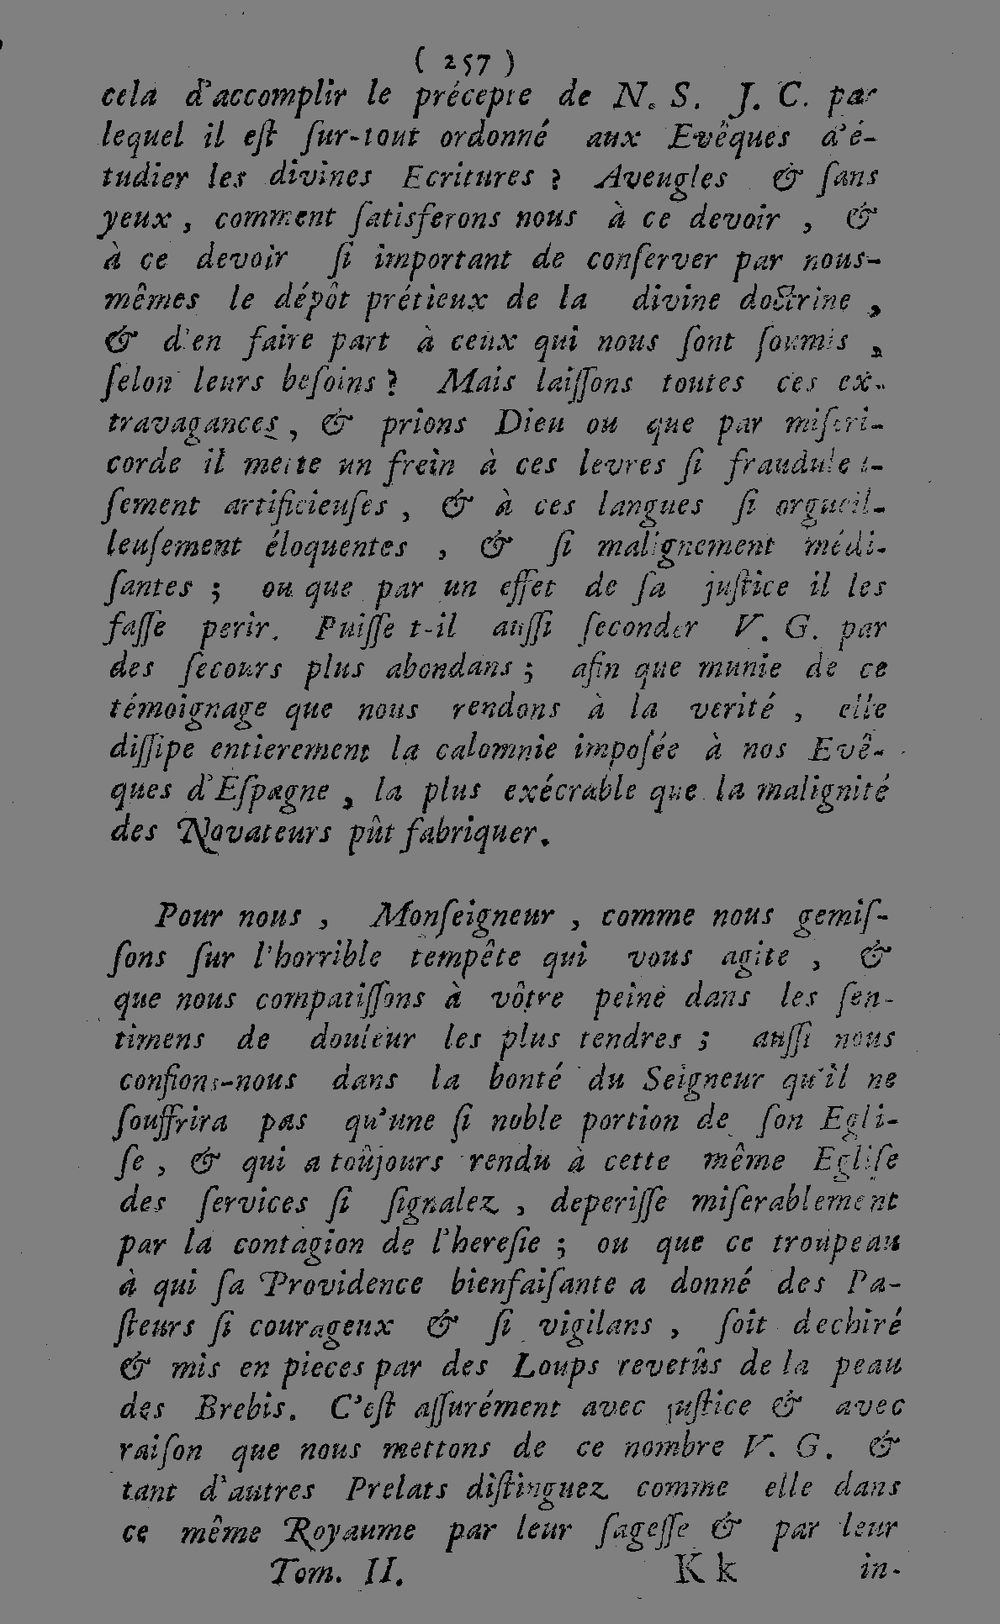 ( 257 )
cela d'accomplir le précepte de N. S. J. C. par
lequel il eſt ſur-tout ordonné aux Evêques d'é-
tudier les divines Ecritures ? Aveugles & ſans
yeux , comment ſatisferons nous à ce devoir , &
à ce devoir ſi important de conſerver par nous-
mêmes le dépôt prétieux de la divine doctrine ,
& d'en faire part à ceux qui nous ſont ſoumis ,
ſelon leurs beſoins ? Mais laiſſons toutes ces ex-
travagances , & prions Dieu ou que par miſeri-
corde il mette un frein à ces levres ſi frauduleu-
ſement artificieuſes , & à ces langues ſi orgueil-
leuſement éloquentes , & ſi malignement médi-
ſantes ; ou que par un effet de ſa juſtice il les
faſſe perir. Puiſſe t-il auſſi ſeconder V. G. par
des ſecours plus abondans ; afin que munie de ce
témoignage que nous rendons à la verité , elle
diſſipe entierement la calomnie impoſée à nos Evê-
ques d'Eſpagne , la plus exécrable que la malignité
des Novateurs pût fabriquer.
Pour nous , Monſeigneur , comme nous gemiſ-
ſons ſur l'horrible tempête qui vous agite , &
que nous compatiſſons à vôtre peine dans les ſen-
timens de douleur les plus tendres ; auſſi nous
confions-nous dans la bonté du Seigneur qu'il ne
ſouffrira pas qu'une ſi noble portion de ſon Egli-
ſe , & qui a toûjours rendu à cette même Egliſe
des ſervices ſi ſignalez , deperiſſe miſerablement
par la contagion de l'hereſie ; ou que ce troupeau
à qui ſa Providence bienfaiſante a donné des Pa-
ſteurs ſi courageux & ſi vigilans , ſoit dechiré
& mis en pieces par des Loups revetûs de la peau
des Brebis. C'eſt aſſurément avec juſtice & avec
raiſon que nous mettons de ce nombre V. G. &
tant d'autres Prelats diſtinguez comme elle dans
ce même Royaume par leur ſageſſe & par leur
Tom. II. K k in-